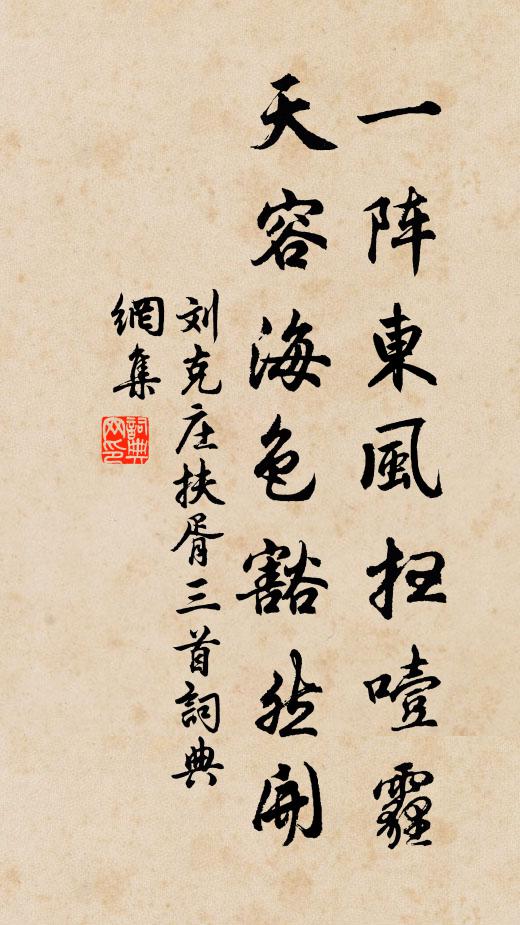 一阵東風扫噎霾
天容海色豁然開
刘克庄扶胥三首詞典
網集
詞典网印